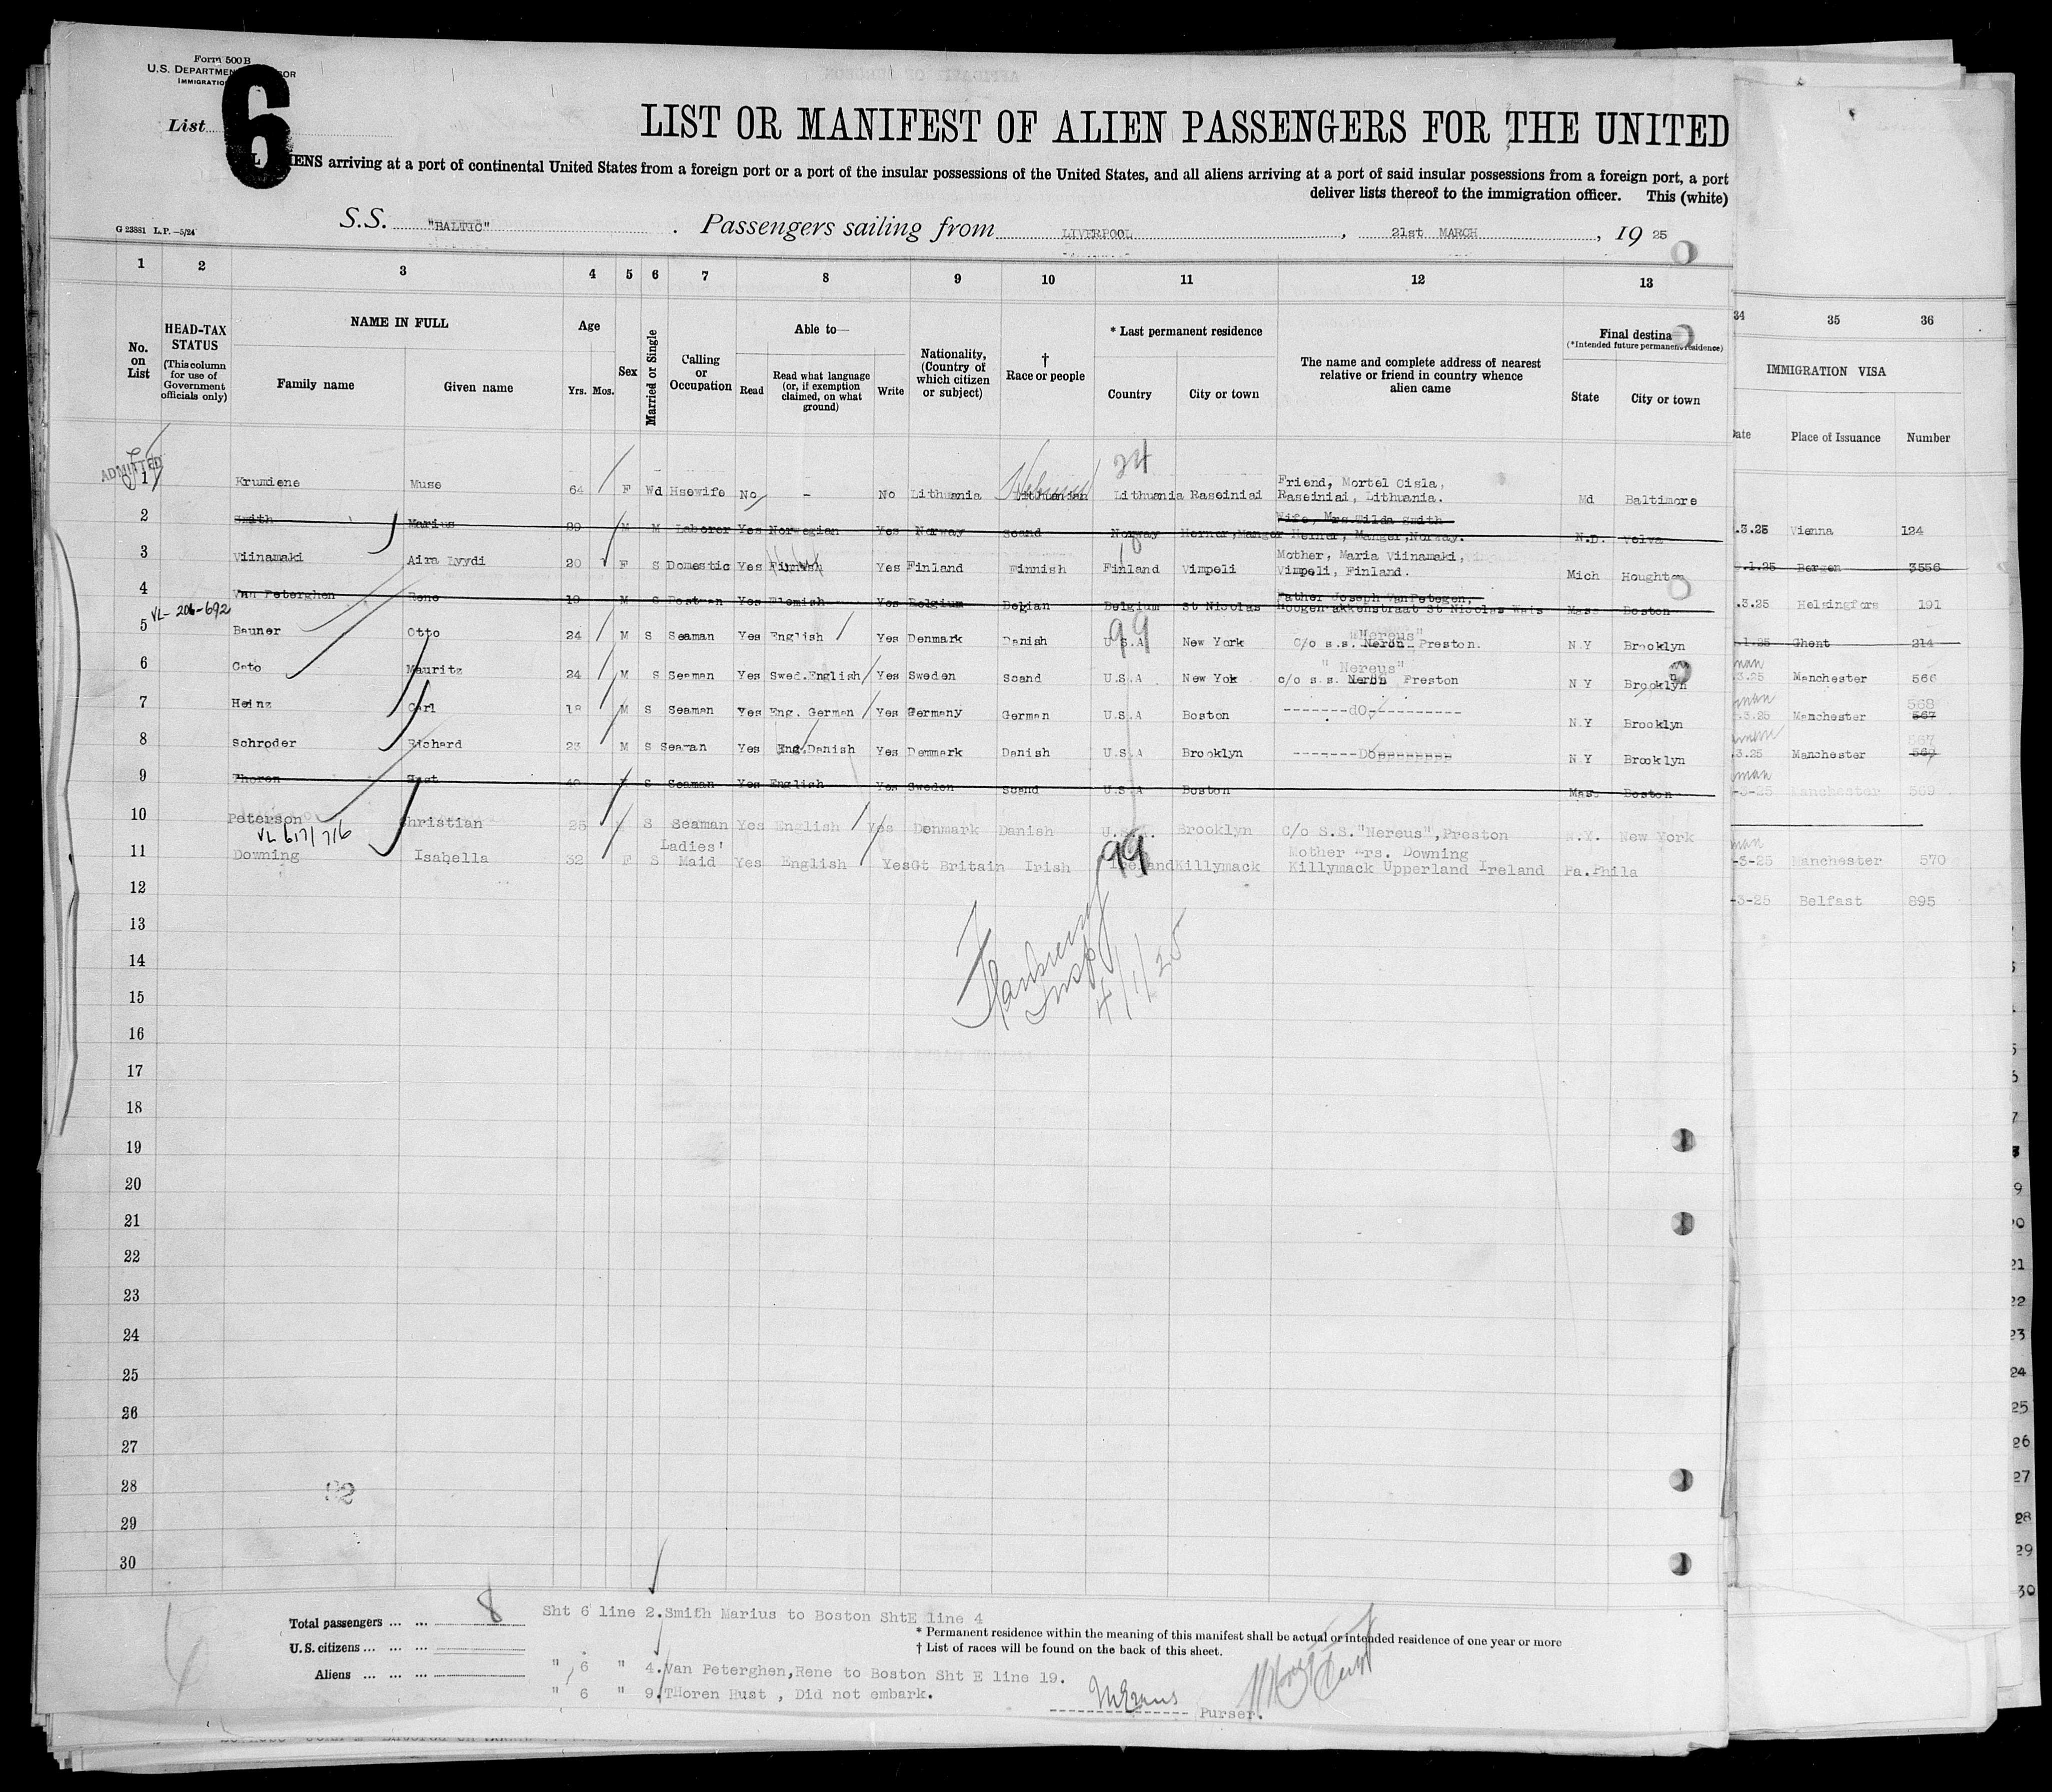 Form 500 B
U.S. DEPARTMENT
IMMIGRATION
List
6
LIST OR MANIFEST OF ALIEN PASSENGERS FOR THE UNITED
ALIENS arriving at a port of continental United States from a foreign port or a port of the insular possessions of the United States, and all aliens arriving at a port of said insular possessions from a foreign port, a port
deliver lists thereof to the immigration officer. This (white)
G 23881 L.P.—5/24
S.S. "BALTIC" . Passengers sailing from LIVERPOOL , 21st MARCH , 19 25
1 2 3 4 5 6 7 8 9 10 11 12 13
34 35 36
No. on List
HEAD-TAX STATUS (This column for use of Government officials only)
NAME IN FULL
Family name Given name
Age
Yrs. Mos.
Sex
Married or Single
Calling or Occupation
Able to—
Read
Read what language (or, if exemption claimed, on what ground)
Write
Nationality, (Country of which citizen or subject)
† Race or people
* Last permanent residence
Country City or town
The name and complete address of nearest relative or friend in country whence alien came
Final destina
(*Intended future permanent residence)
State City or town
IMMIGRATION VISA
Date Place of Issuance Number
ADMITTED
24
1 Krumiene Muse 64 F Wd Hsewife No - No Lithuania Lithuanian Lithuania Raseiniai Friend, Mortel Cisla, Raseiniai, Lithuania. Md Baltimore
.3.25 Vienna 124
2 Smith Marius 29 M M Laborer Yes Norwegian Yes Norway Scand Norway Herner,Manger Wife, Mrs.Wilda Smith Herner, Manger,Norway. N.D. Velva
.1.25 Bergen 3556
3 Viinamaki Aira Lyydi 20 F S Domestic Yes Finnish Yes Finland Finnish Finland Vimpeli Mother, Maria Viinamaki, Vimpeli, Finland. Mich Houghton
.3.25 Helsingfors 191
4 Van Peterghen Rene 19 M S Postman Yes Flemish Yes Belgium Belgian Belgium St Nicolas Father Joseph VanPetegen, Hoogen akkenstraat St Nicolas Wais Mass Boston
.1.25 Ghent 214
VL-206-692
99
5 Bauner Otto 24 M S Seaman Yes English Yes Denmark Danish U.S.A New York "Nereus" C/o s.s. Neron Preston. N.Y Brooklyn
3.25 Manchester 566
6 Cato Mauritz 24 M S Seaman Yes Swed.English Yes Sweden Scand U.S.A New Yok "Nereus" c/o s.s. Neron Preston N Y Brooklyn
.3.25 Manchester 568 567
7 Heinz Carl 18 M S Seaman Yes Eng. German Yes Germany German U.S.A Boston -------dO---------- N.Y Brooklyn
3.25 Manchester 567 569
8 Schroder Richard 23 M S Seaman Yes Eng.Danish Yes Denmark Danish U.S.A Brooklyn -------Do--------- N Y Brooklyn
-3-25 Manchester 569
9 Thoren Hust 40 M S Seaman Yes English Yes Sweden Scand U.S.A Boston Mass Boston
10 Peterson Christian 25 S Seaman Yes English Yes Denmark Danish U.S.A. Brooklyn C/o S.S."Nereus",Preston N.Y. New York
-3-25 Manchester 570
VL 617/716
99
11 Downing Isabella 32 F S Ladies' Maid Yes English Yes Gt Britain Irish Ireland Killymack Mother Mrs. Downing Killymack Upperland Ireland Pa. Phila
-3-25 Belfast 895
12
13
14
15
16
17
18
19
20
21
22
23
24
25
26
27
28
29
30
Insp
4/1/25
Total passengers ... ... 8
U.S. citizens ... ... ...
Aliens ... ... ...
Sht 6 line 2.Smith Marius to Boston ShtE line 4
* Permanent residence within the meaning of this manifest shall be actual or intended residence of one year or more
† List of races will be found on the back of this sheet.
" 6 " 4.Van Peterghen,Rene to Boston Sht E line 19.
" 6 " 9.THoren Hust , Did not embark.
Purser.